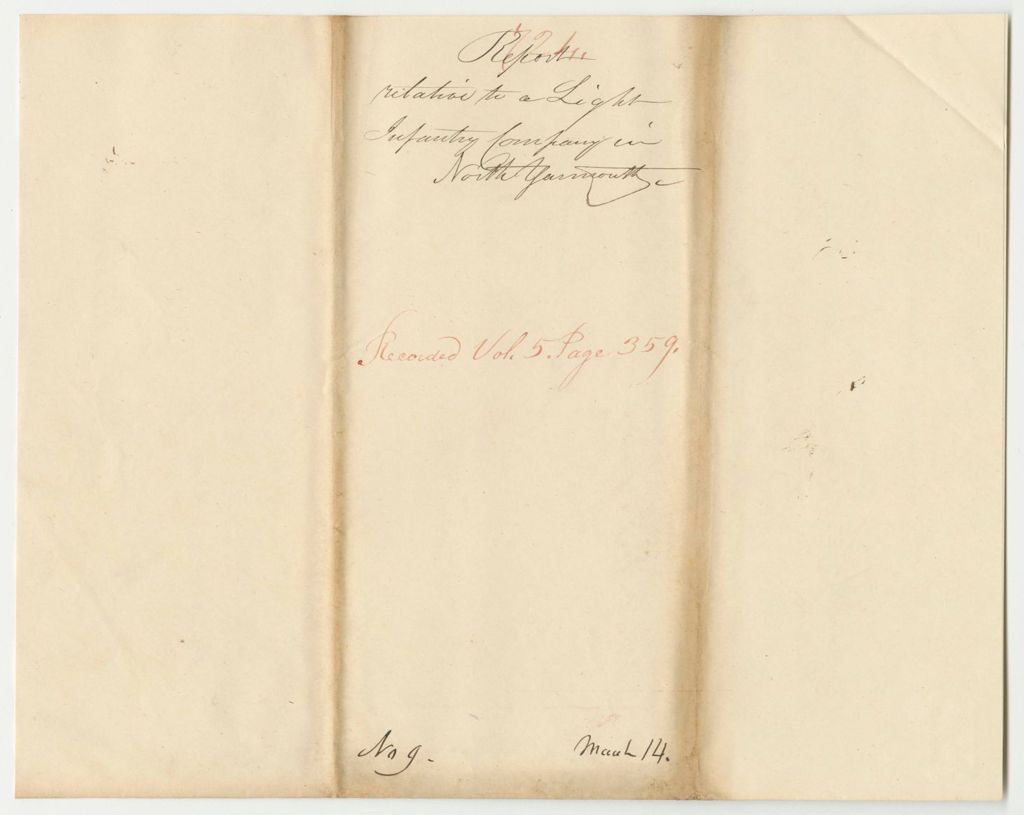 Report
relative to a Light
Infantry Company in
North Yarmouth
Recorded Vol. 5. Page 359.
No 9.
March 14.